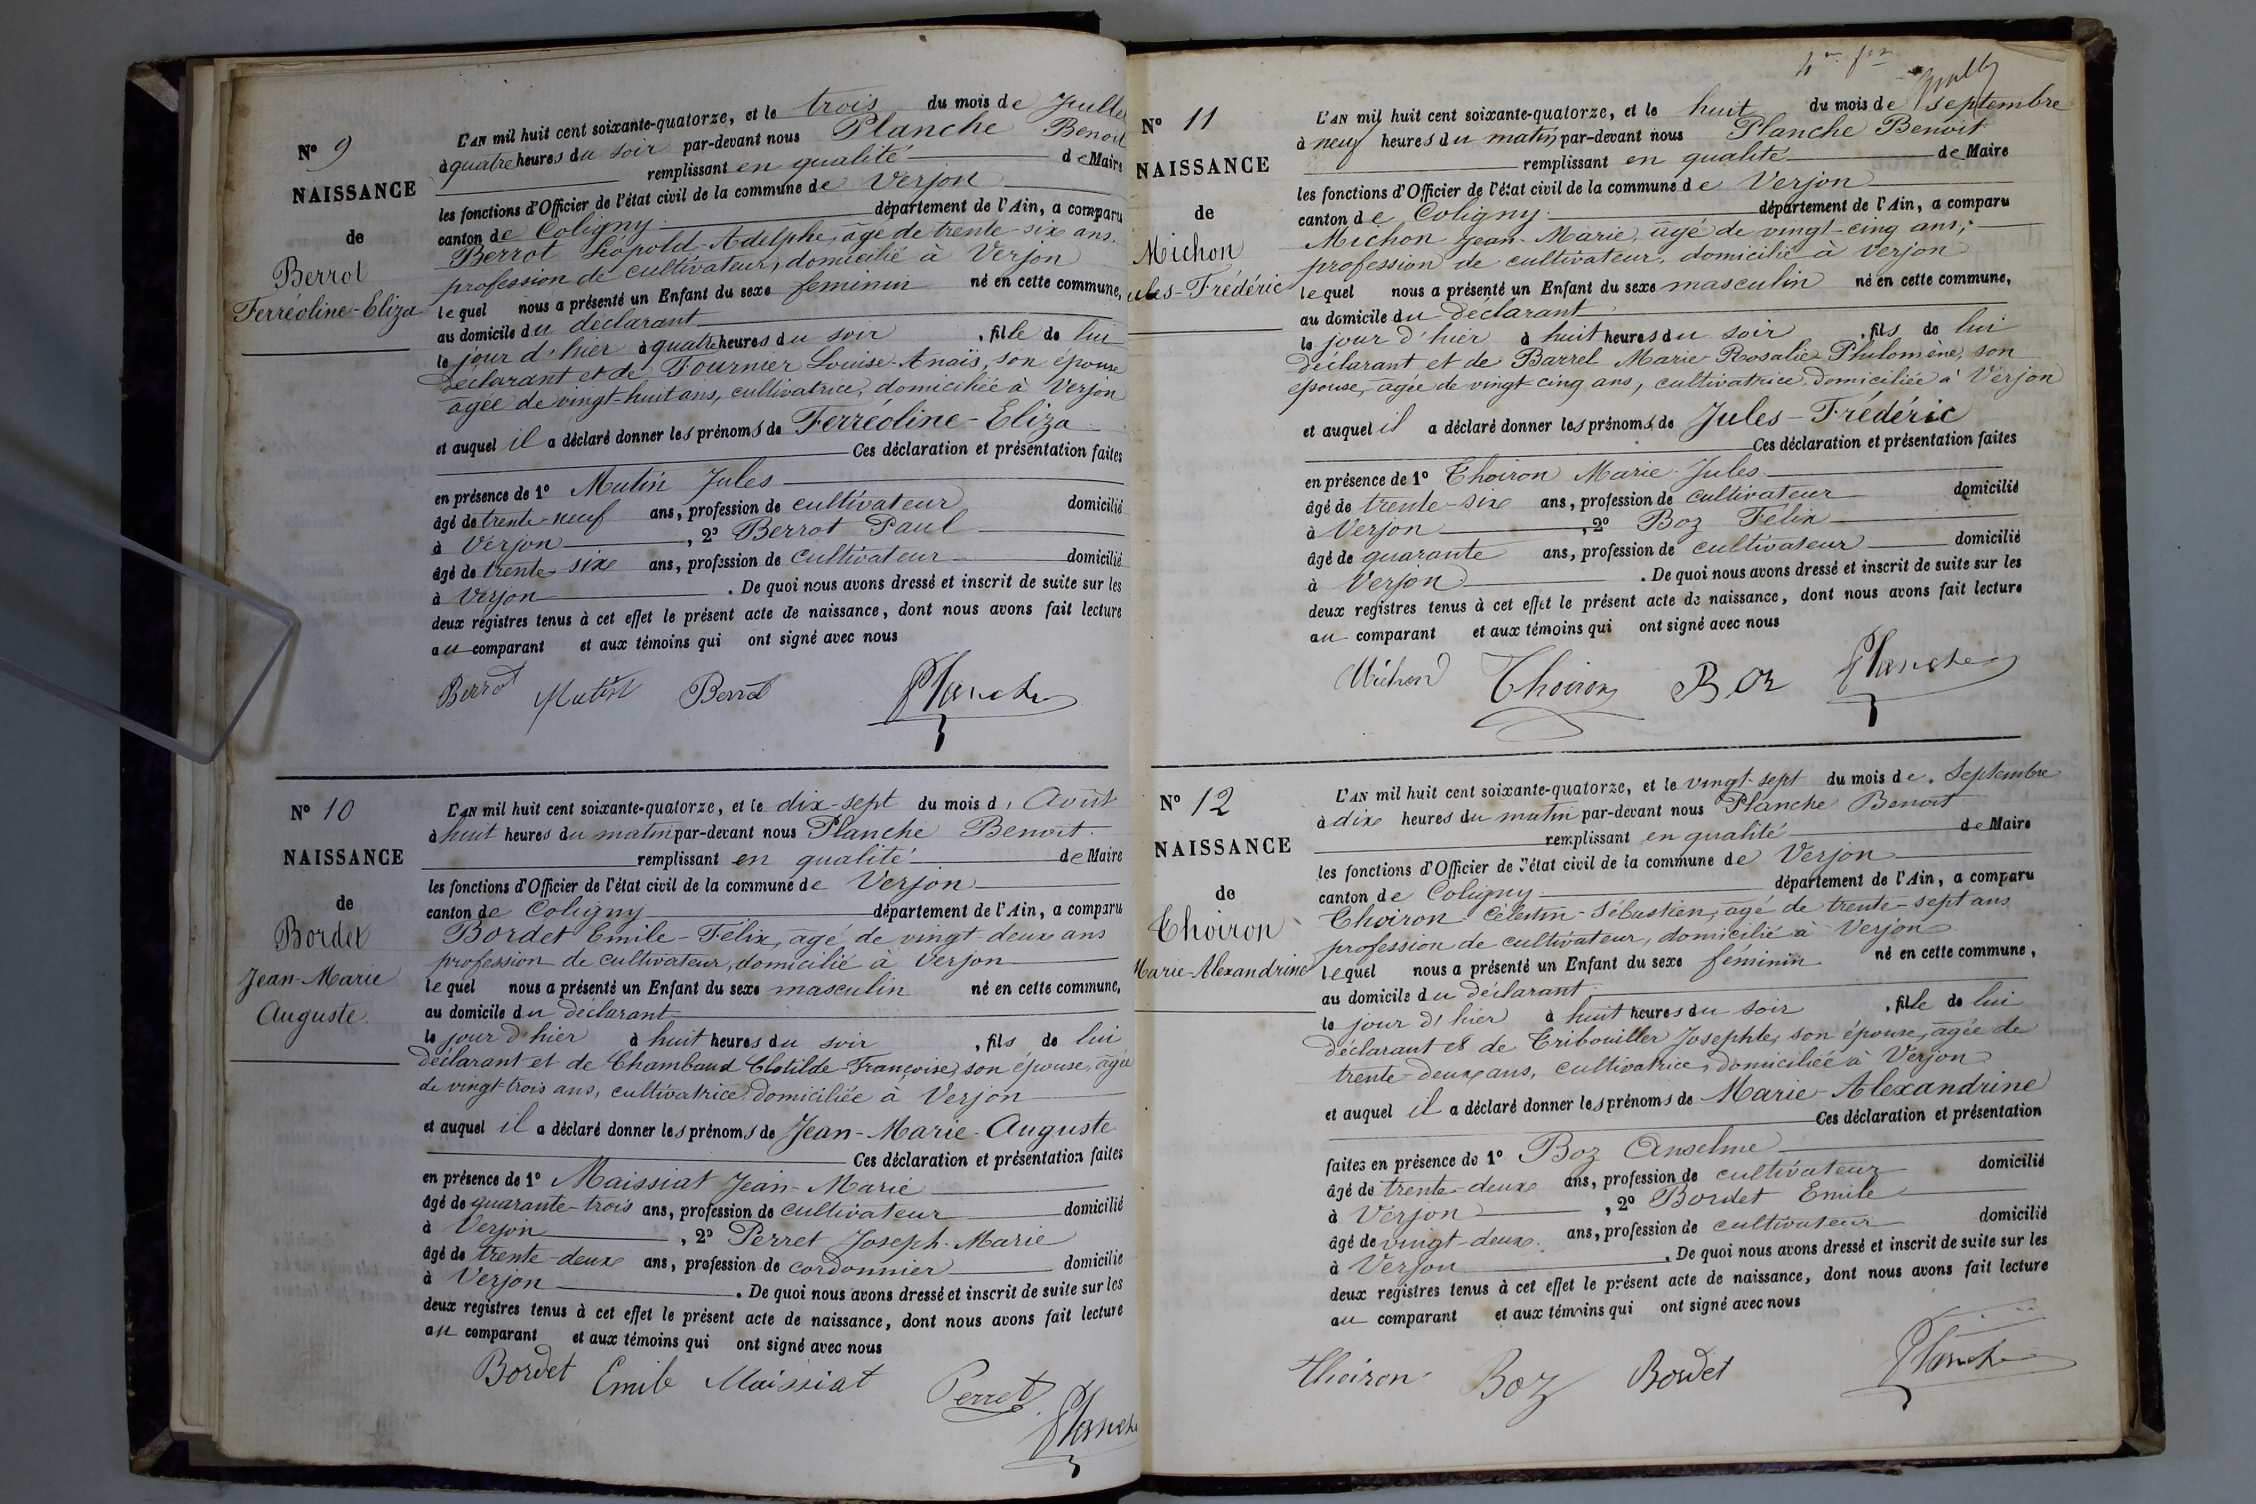 N° 9
NAISSANCE
de
Berrot
Ferréoline-Eliza
L'AN mil huit cent soixante-quatorze, et le trois du mois de Juillet
à quatre heures du soir par-devant nous Planche Benoit
remplissant en qualité de Maire
les fonctions d'Officier de l'état civil de la commune de Verjon
canton de Coligny département de l'Ain, a comparu
Berrot Léopold-Adelphe, âgé de trente-six ans.
profession de cultivateur, domicilié à Verjon
lequel nous a présenté un Enfant du sexe feminin né en cette commune,
au domicile du déclarant
le jour d'hier à quatre heures du soir, fille de lui
déclarant et de Fournier Louise-Anaïs, son épouse
âgée de vingt-huit ans, cultivatrice, domiciliée à Verjon
et auquel il a déclaré donner les prénoms de Ferréoline-Eliza
Ces déclaration et présentation faites
en présence de 1° Mutin Jules
âgé de trente-neuf ans, profession de cultivateur domicilié
à Verjon, 2° Berrot Paul
âgé de trente-six ans, profession de cultivateur domicilié
à Verjon. De quoi nous avons dressé et inscrit de suite sur les
deux registres tenus à cet effet le présent acte de naissance, dont nous avons fait lecture
au comparant et aux témoins qui ont signé avec nous
Berrot Mutin Berrot Planche
N° 10
NAISSANCE
de
Bordet
Jean-Marie
Auguste.
L'AN mil huit cent soixante-quatorze, et le dix-sept du mois d'Août
à huit heures du matin par-devant nous Planche Benoit.
remplissant en qualité de Maire
les fonctions d'Officier de l'état civil de la commune de Verjon
canton de Coligny département de l'Ain, a comparu
Bordet Emile-Félix, âgé de vingt-deux ans
profession de cultivateur, domicilié à Verjon
lequel nous a présenté un Enfant du sexe masculin né en cette commune,
au domicile du déclarant
le jour d'hier à huit heures du soir, fils de lui
déclarant et de Chambaud Clotilde-Françoise, son épouse, âgée
de vingt-trois ans, cultivatrice, domiciliée à Verjon
et auquel il a déclaré donner les prénoms de Jean-Marie-Auguste
Ces déclaration et présentation faites
en présence de 1° Maissiat Jean-Marie
âgé de quarante-trois ans, profession de cultivateur domicilié
à Verjon, 2° Perret Joseph-Marie
âgé de trente-deux ans, profession de cordonnier domicilié
à Verjon. De quoi nous avons dressé et inscrit de suite sur les
deux registres tenus à cet effet le présent acte de naissance, dont nous avons fait lecture
au comparant et aux témoins qui ont signé avec nous
Bordet Emile Maissiat Perret
Planche
N° 11
NAISSANCE
de
Michon
Jules-Frédéric
L'AN mil huit cent soixante-quatorze, et le huit du mois de septembre
à neuf heures du matin par-devant nous Planche Benoit
remplissant en qualité de Maire
les fonctions d'Officier de l'état civil de la commune de Verjon
canton de Coligny. département de l'Ain, a comparu
Michon Jean-Marie, âgé de vingt-cinq ans,
profession de cultivateur, domicilié à Verjon
lequel nous a présenté un Enfant du sexe masculin né en cette commune,
au domicile du déclarant
le jour d'hier à huit heures du soir, fils de lui
déclarant et de Barrel Marie-Rosalie-Philomène, son
épouse, âgée de vingt-cinq ans, cultivatrice, domiciliée à Verjon
et auquel il a déclaré donner les prénoms de Jules-Frédéric
Ces déclaration et présentation faites
en présence de 1° Thoiron Marie-Jules
âgé de trente-six ans, profession de cultivateur domicilié
à Verjon, 2° Boz Félix
âgé de quarante ans, profession de cultivateur domicilié
à Verjon. De quoi nous avons dressé et inscrit de suite sur les
deux registres tenus à cet effet le présent acte de naissance, dont nous avons fait lecture
au comparant et aux témoins qui ont signé avec nous
Michon Thoiron Boz Planche
N° 12
NAISSANCE
de
Thoiron
Marie-Alexandrine
L'AN mil huit cent soixante-quatorze, et le vingt-sept du mois de Septembre
à dix heures du matin par-devant nous Planche Benoit
remplissant en qualité de Maire
les fonctions d'Officier de l'état civil de la commune de Verjon
canton de Coligny département de l'Ain, a comparu
Thoiron Célestin-Sébastien, âgé de trente-sept ans
profession de cultivateur, domicilié à Verjon
lequel nous a présenté un Enfant du sexe féminin né en cette commune,
au domicile du déclarant
le jour d'hier à huit heures du soir, fille de lui
déclarant et de Tribouiller Josephte, son épouse, âgée de
trente-deux ans, cultivatrice, domiciliée à Verjon
et auquel il a déclaré donner les prénoms de Marie-Alexandrine
Ces déclaration et présentation
faites en présence de 1° Boz Anselme
âgé de trente-deux ans, profession de cultivateur domicilié
à Verjon, 2° Bordet Emile
âgé de vingt-deux ans, profession de cultivateur domicilié
à Verjon. De quoi nous avons dressé et inscrit de suite sur les
deux registres tenus à cet effet le présent acte de naissance, dont nous avons fait lecture
au comparant et aux témoins qui ont signé avec nous
Thoiron Boz Bordet Planche